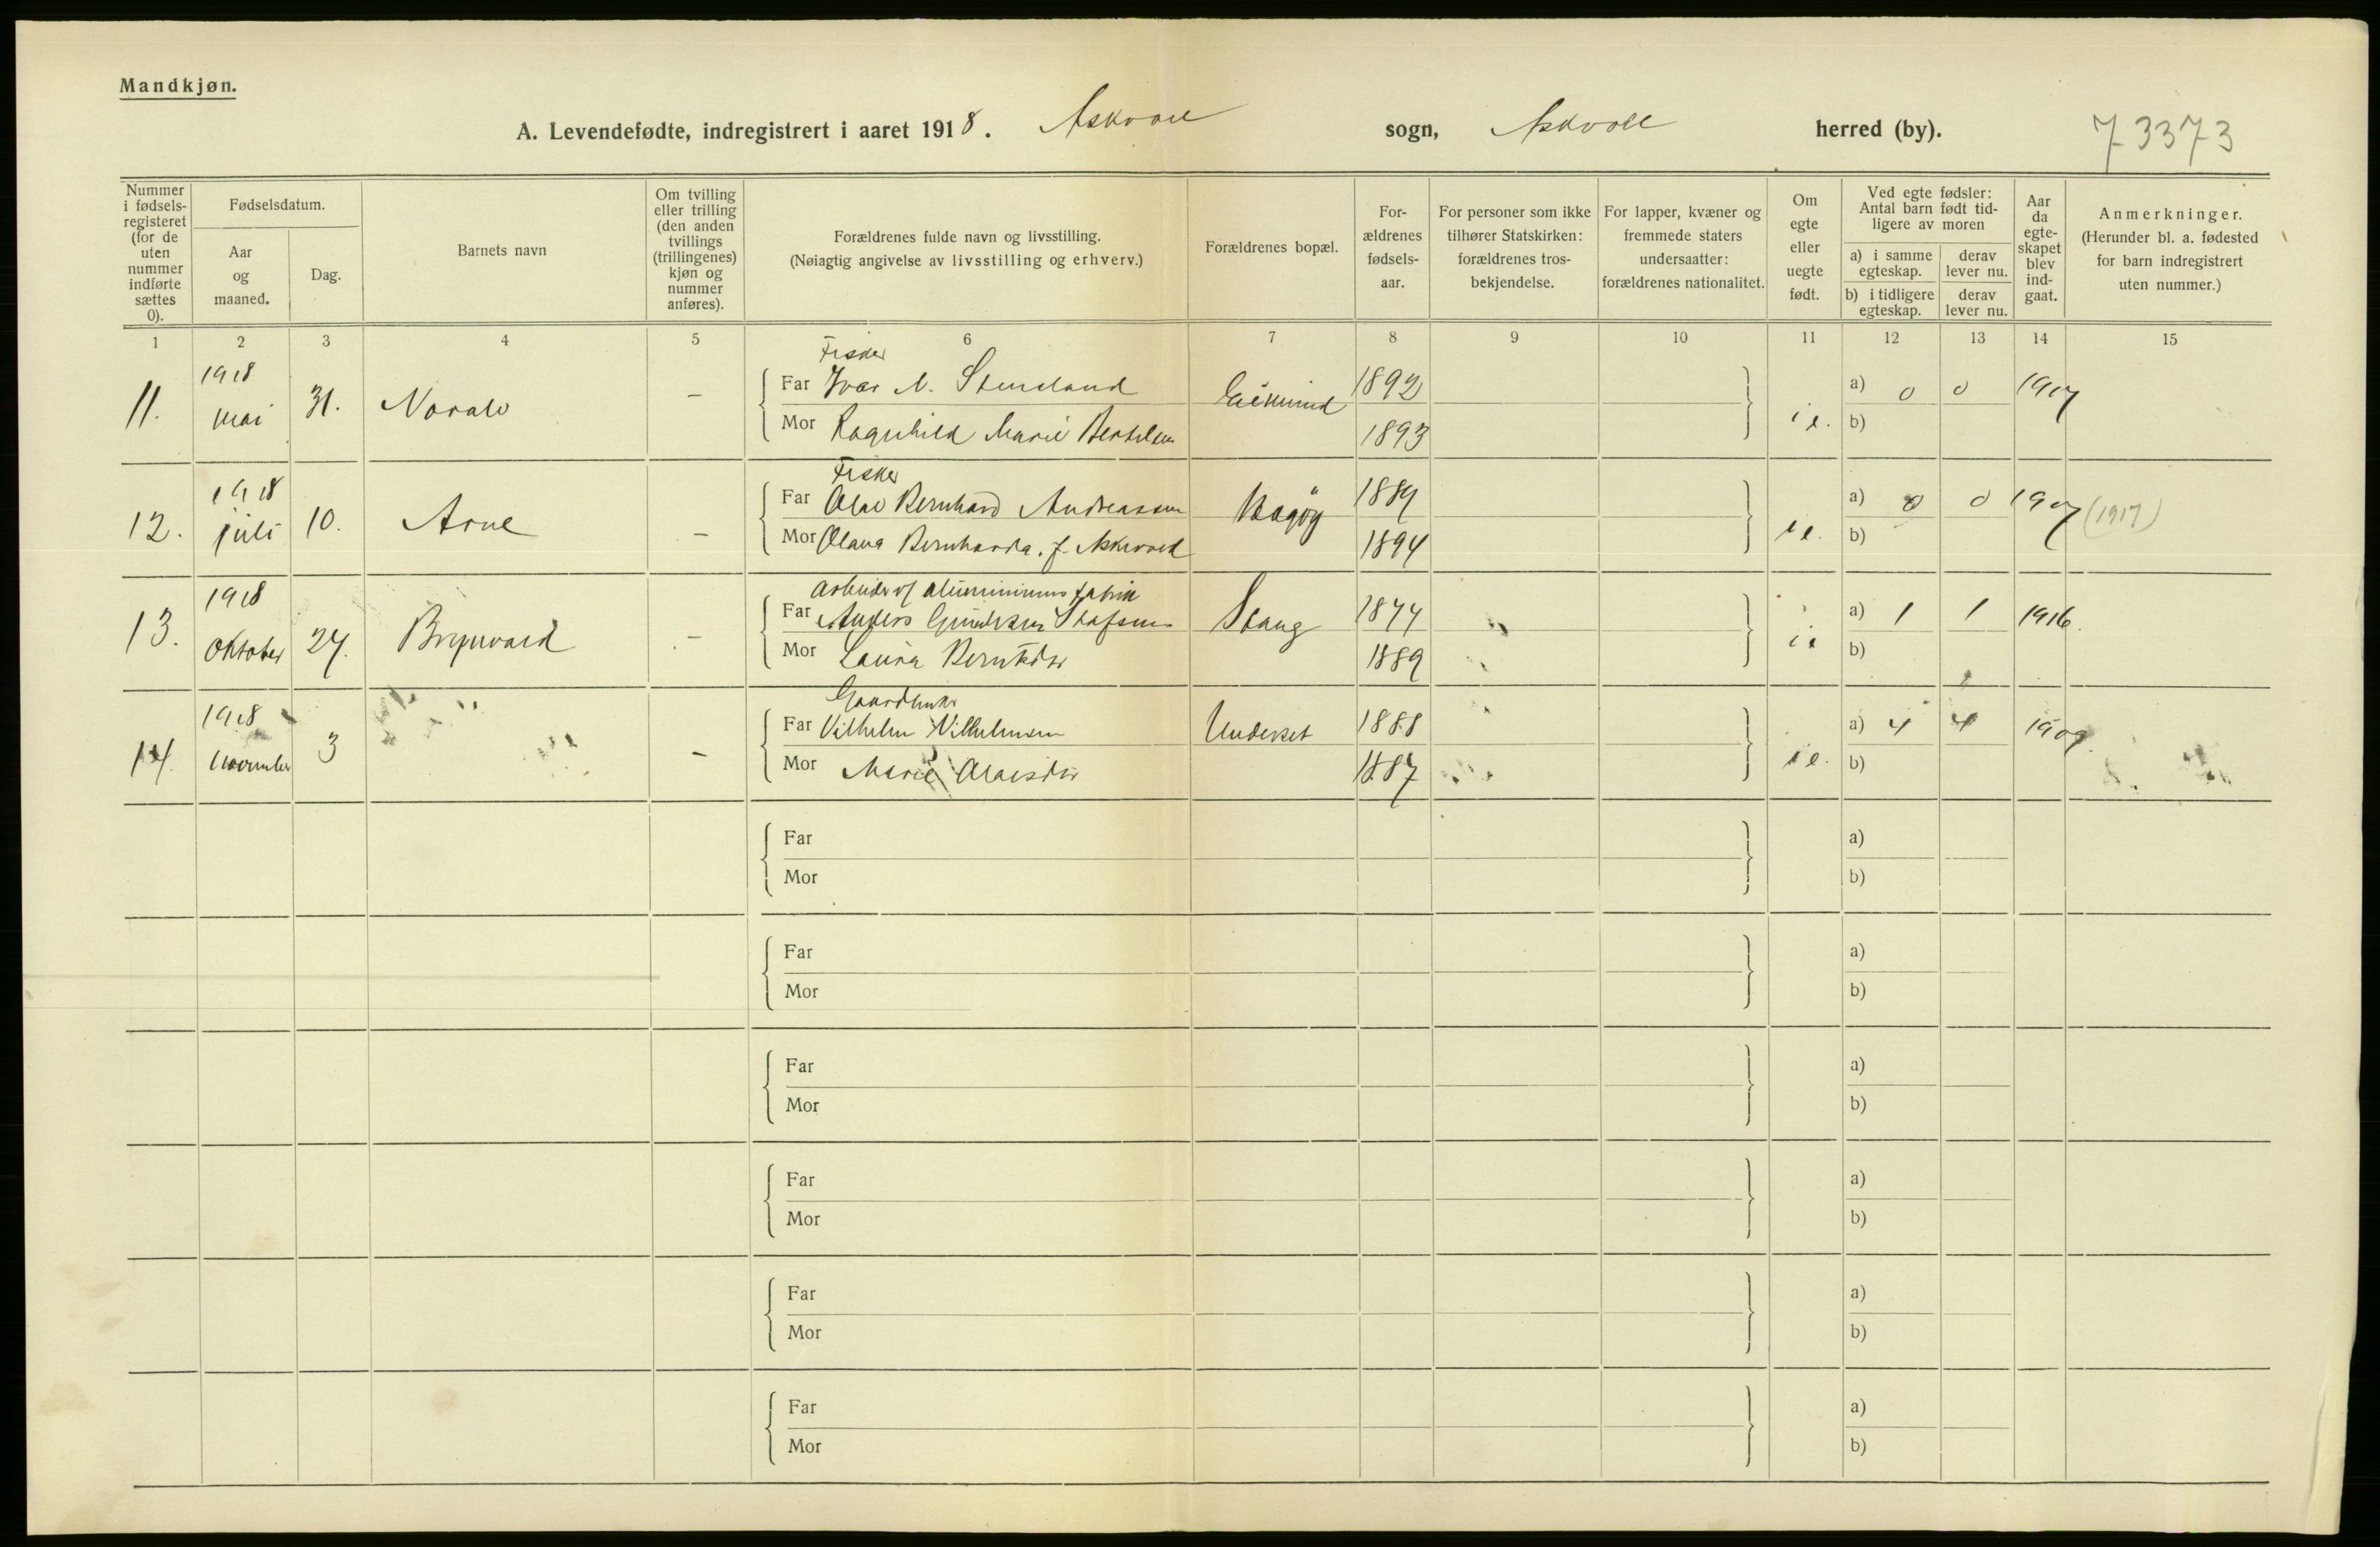 Mandkjøn.
A. Levendefødte, indregistrert i aaret 1918. Askvoll sogn, Askvoll herred (by).
73373
Nummer i fødsels-registeret (for de uten nummer indførte sættes 0).
Fødselsdatum.
Aar og maaned.
Dag.
Barnets navn
Om tvilling eller trilling (den anden tvillings (trillingenes) kjøn og nummer anføres).
Forældrenes fulde navn og livsstilling.
(Nøiagtig angivelse av livsstilling og erhverv.)
Forældrenes bopæl.
For-ældrenes fødsels-aar.
For personer som ikke tilhører Statskirken: forældrenes tros-bekjendelse.
For lapper, kvæner og fremmede staters undersaatter: forældrenes nationalitet.
Om egte eller uegte født.
Ved egte fødsler: Antal barn født tid-ligere av moren
a) i samme egteskap.
derav lever nu.
b) i tidligere egteskap.
derav lever nu.
Aar da egte-skapet blev ind-gaat.
Anmerkninger.
(Herunder bl. a. fødested for barn indregistrert uten nummer.)
1 2 3 4 5 6 7 8 9 10 11 12 13 14 15
Fisker
11. 1918 mai 31. Noralv –
Far Ivar N. Stensland 1892
Mor Ragnhild Marie Bertelsen 1893
i e. a) 0 0 1917
b)
Fisker
12. 1918 juli 10. Arne –
Far Olav Bernhard Andreassen 1889
Mor Olava Bernharda. f. Askevold 1894
i e. a) 0 0 1907 (1917)
b)
Arbeider v/ aluminiums fabrik
13. 1918 Oktober 27. Brynvald –
Far Anders 1877
Stang
Mor Laura Berntsdtr 1889
i e a) 1 1 1916.
b)
Gaardbruker
14. 1918 November 3 –
Far Vilhelm Vilhelmsen Underset 1888
Mor Marie Olaisdtr 1887
i e. a) 4 4 1909.
b)
Far a)
Mor b)
Far a)
Mor b)
Far a)
Mor b)
Far a)
Mor b)
Far a)
Mor b)
Far a)
Mor b)